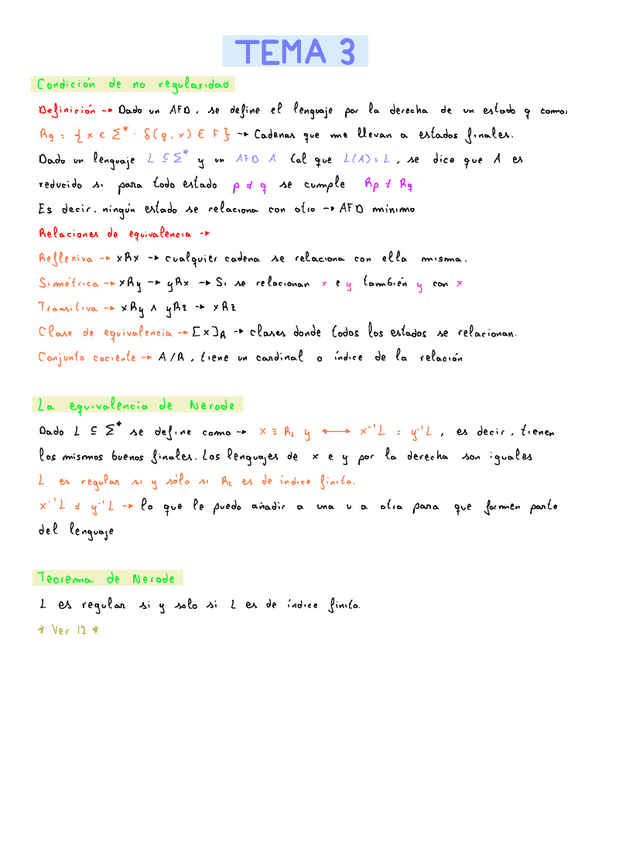 TEMA 3
Condición de no regularidad
Definición → Dado un AFD, se define el lenguaje por la derecha de un estado q como:
Rq = { x ∈ Σ* · δ(q, x) ∈ F } → Cadenas que me llevan a estados finales.
Dado un lenguaje L ⊆ Σ* y un AFD A tal que L(A) = L, se dice que A es
reducido si para todo estado p ≠ q se cumple Rp ≠ Rq
Es decir, ningún estado se relaciona con otro → AFD mínimo
Relaciones de equivalencia →
Reflexiva → xRx → cualquier cadena se relaciona con ella misma.
Simétrica → xRy → yRx → Si se relacionan x e y también y con x
Transitiva → xRy ∧ yRz → xRz
Clase de equivalencia → [x]R → clases donde todos los estados se relacionan.
Conjunto cociente → A/R, tiene un cardinal o índice de la relación
La equivalencia de Nerode
Dado L ⊆ Σ* se define como → x ≡ RL y ↔ x⁻¹L = y⁻¹L, es decir, tienen
los mismos buenos finales. Los lenguajes de x e y por la derecha son iguales
L es regular si y sólo si RL es de índice finito.
x⁻¹L ≠ y⁻¹L → lo que le puedo añadir a una u a otra para que formen parte
del lenguaje
Teorema de Nerode
L es regular si y solo si L es de índice finito.
* Ver 12 *